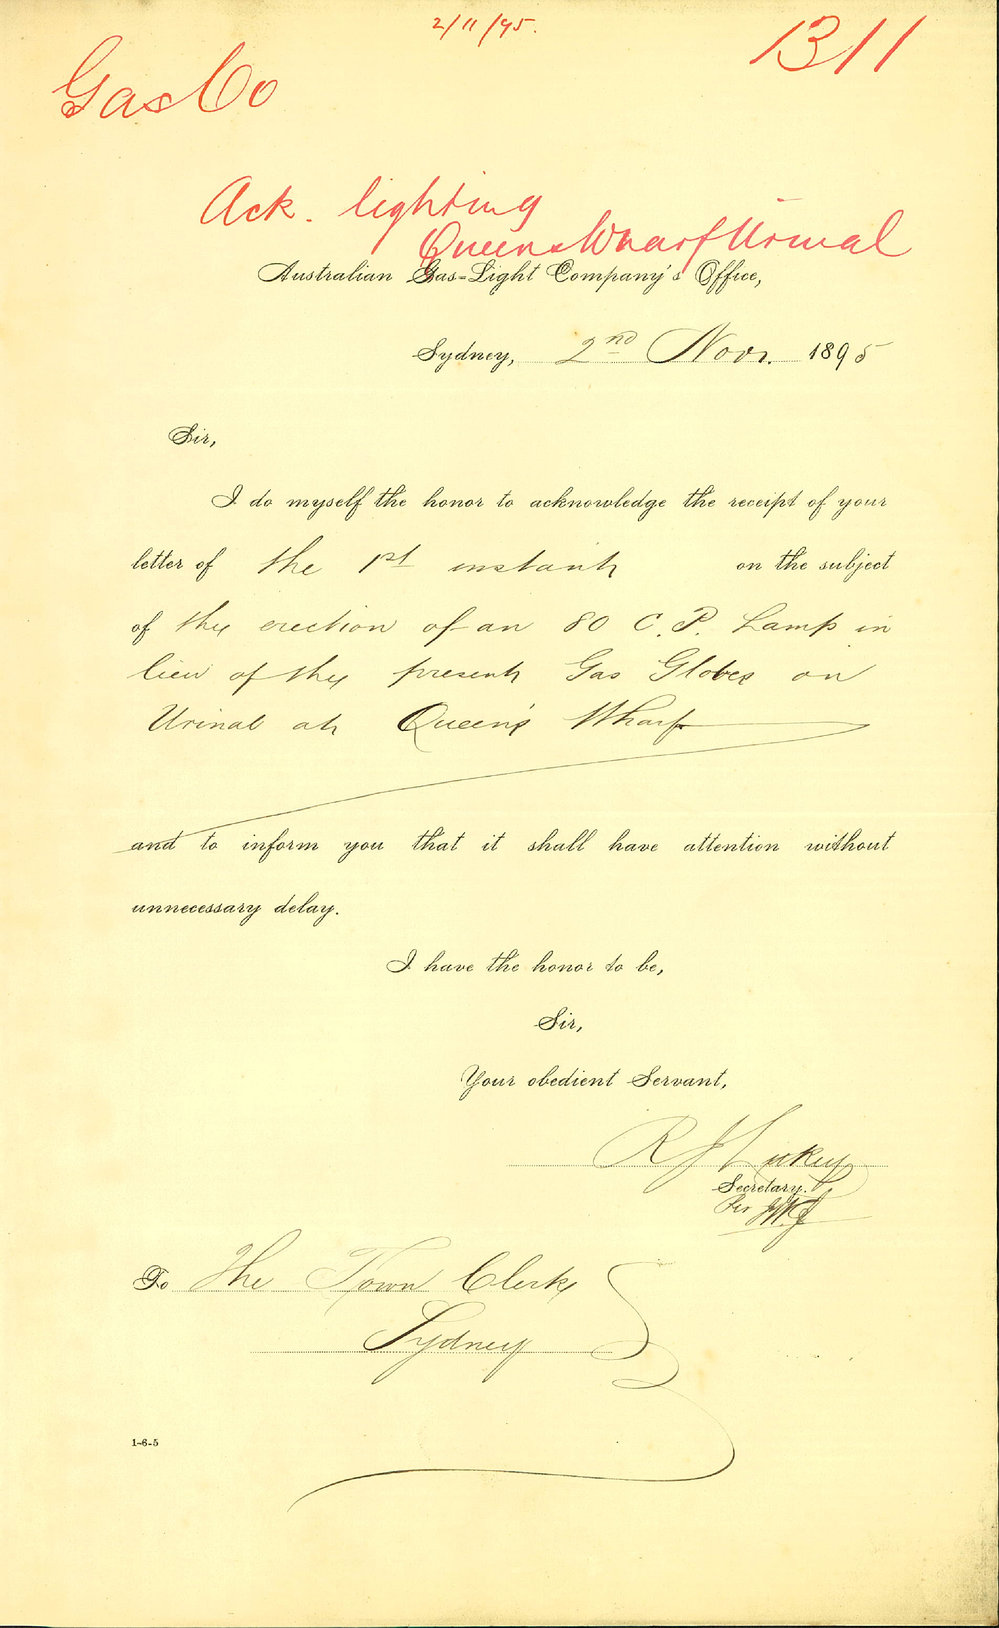 2/11/95.
1311
Gas Co
Ack. lighting
Queens Wharf Urinal
Australian Gas-Light Company's Office,
Sydney, 2nd Novr. 1895
Sir,
I do myself the honor to acknowledge the receipt of your
letter of the 1st instant on the subject
of the erection of an 80 C.P. Lamp in
lieu of the present Gas Globes on
Urinal at Queen's Wharf
and to inform you that it shall have attention without
unnecessary delay.
I have the honor to be,
Sir,
Your obedient Servant,
R J Lukey
Secretary.
Per
To The Town Clerk
Sydney
1-6-5